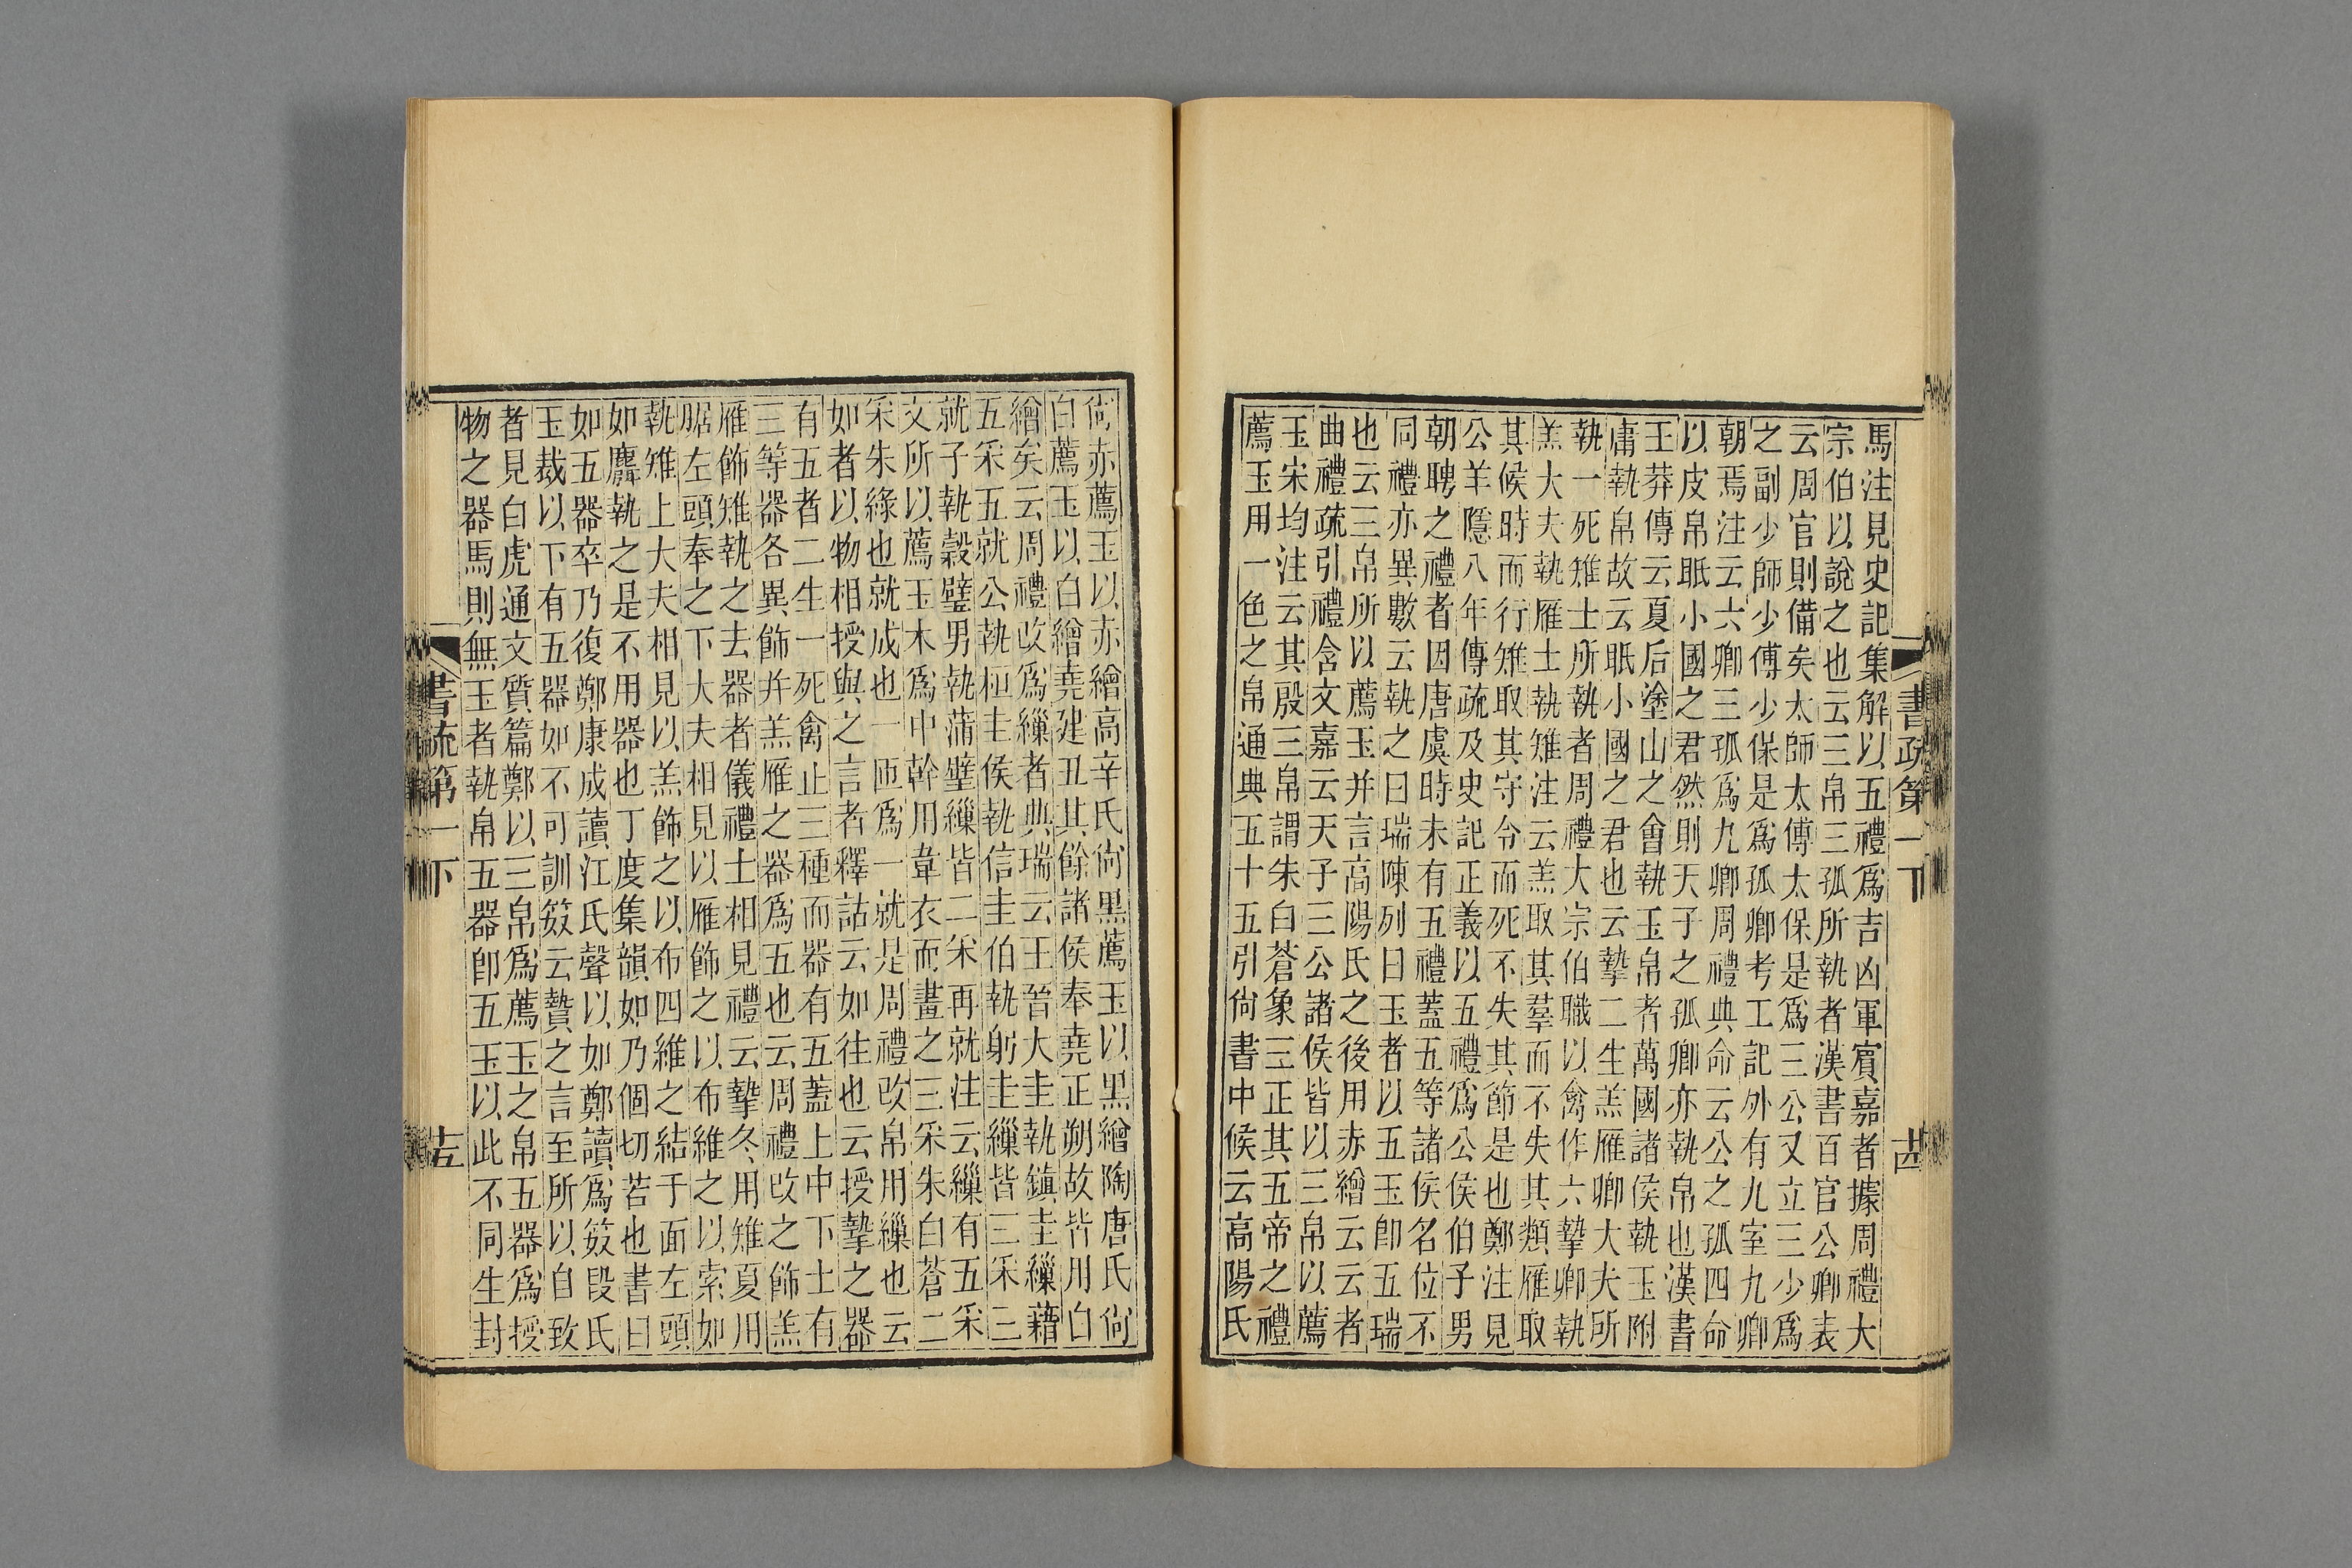 書疏第一下
馬注見史記集解以五禮爲吉凶軍賓嘉者據周禮大
宗伯以說之也云三帛三孤所執者漢書百官公卿表
云周官則備矣太師太傅太保是爲三公又立三少爲
之副少師少傅少保是爲孤卿考工記外有九室九卿
朝焉注云六卿三孤爲九卿周禮典命云公之孤四命
以皮帛眂小國之君然則天子之孤卿亦執帛也漢書
王莽傳云夏后塗山之會執玉帛者萬國諸侯執玉附
庸執帛故云眂小國之君也云摯二生羔雁卿大夫所
執一死雉士所執者周禮大宗伯職以禽作六摯卿執
羔大夫執雁士執雉注云羔取其羣而不失其類雁取
其候時而行雉取其守令而死不失其節是也鄭注見
公羊隱八年傳疏及史記正義以五禮爲公侯伯子男
朝聘之禮者因唐虞時未有五禮蓋五等諸侯名位不
同禮亦異數云執之曰瑞陳列曰玉者以五玉卽五瑞
也云三帛所以薦玉并言高陽氏之後用赤繒云云者
曲禮疏引禮含文嘉云天子三公諸侯皆以三帛以薦
玉宋均注云其殷三帛謂朱白蒼象三正其五帝之禮
薦玉用一色之帛通典五十五引尙書中候云高陽氏
尙赤薦玉以赤繒高辛氏尙黑薦玉以黑繒陶唐氏尙
白薦玉以白繒堯建丑其餘諸侯奉堯正朔故皆用白
繒矣云周禮改爲繅者典瑞云王晉大圭執鎭圭繅藉
五采五就公執桓圭侯執信圭伯執躬圭繅皆三采三
就子執穀璧男執蒲璧繅皆二采再就注云繅有五采
文所以薦玉木爲中幹用韋衣而畫之三采朱白蒼二
采朱綠也就成也一帀爲一就是周禮改帛用繅也云
如者以物相授與之言者釋詁云如往也云授摯之器
有五者二生一死禽止三種而器有五蓋上中下士有
三等器各異飾并羔雁之器爲五也云周禮改之飾羔
雁飾雉執之去器者儀禮士相見禮云摯冬用雉夏用
腒左頭奉之下大夫相見以雁飾之以布維之以索如
執雉上大夫相見以羔飾之以布四維之結于面左頭
如麛執之是不用器也丁度集韻如乃個切若也書曰
如五器卒乃復鄭康成讀江氏聲以如鄭讀爲笯段氏
玉裁以下有五器如不可訓笯云贄之言至所以自致
者見白虎通文質篇鄭以三帛爲薦玉之帛五器爲授
物之器馬則無玉者執帛五器卽五玉以此不同生封
書疏第一下